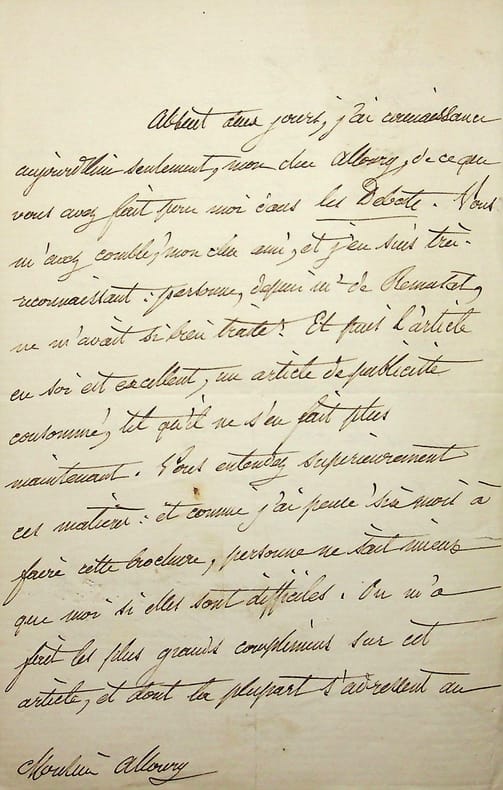 Absent deux jours, j'ai connaissance
aujourd'hui seulement, mon cher Alloury, de ce que
vous avez fait pour moi dans les Débats. Vous
m'avez comblé, mon cher ami, et j'en suis très-
reconnaissant : personne, depuis Mr de Remusat,
ne m'avait si bien traité. Et puis l'article
en soi est excellent, un article de publiciste
consommé, tel qu'il ne s'en fait plus
maintenant. Vous entendez supérieurement
ces matières : et comme j'ai peiné six mois à
faire cette brochure, personne ne sait mieux
que moi si elles sont difficiles. On m'a
fait les plus grands complimens sur cet
article, et dont la plupart s'adressent au
Monsieur Alloury